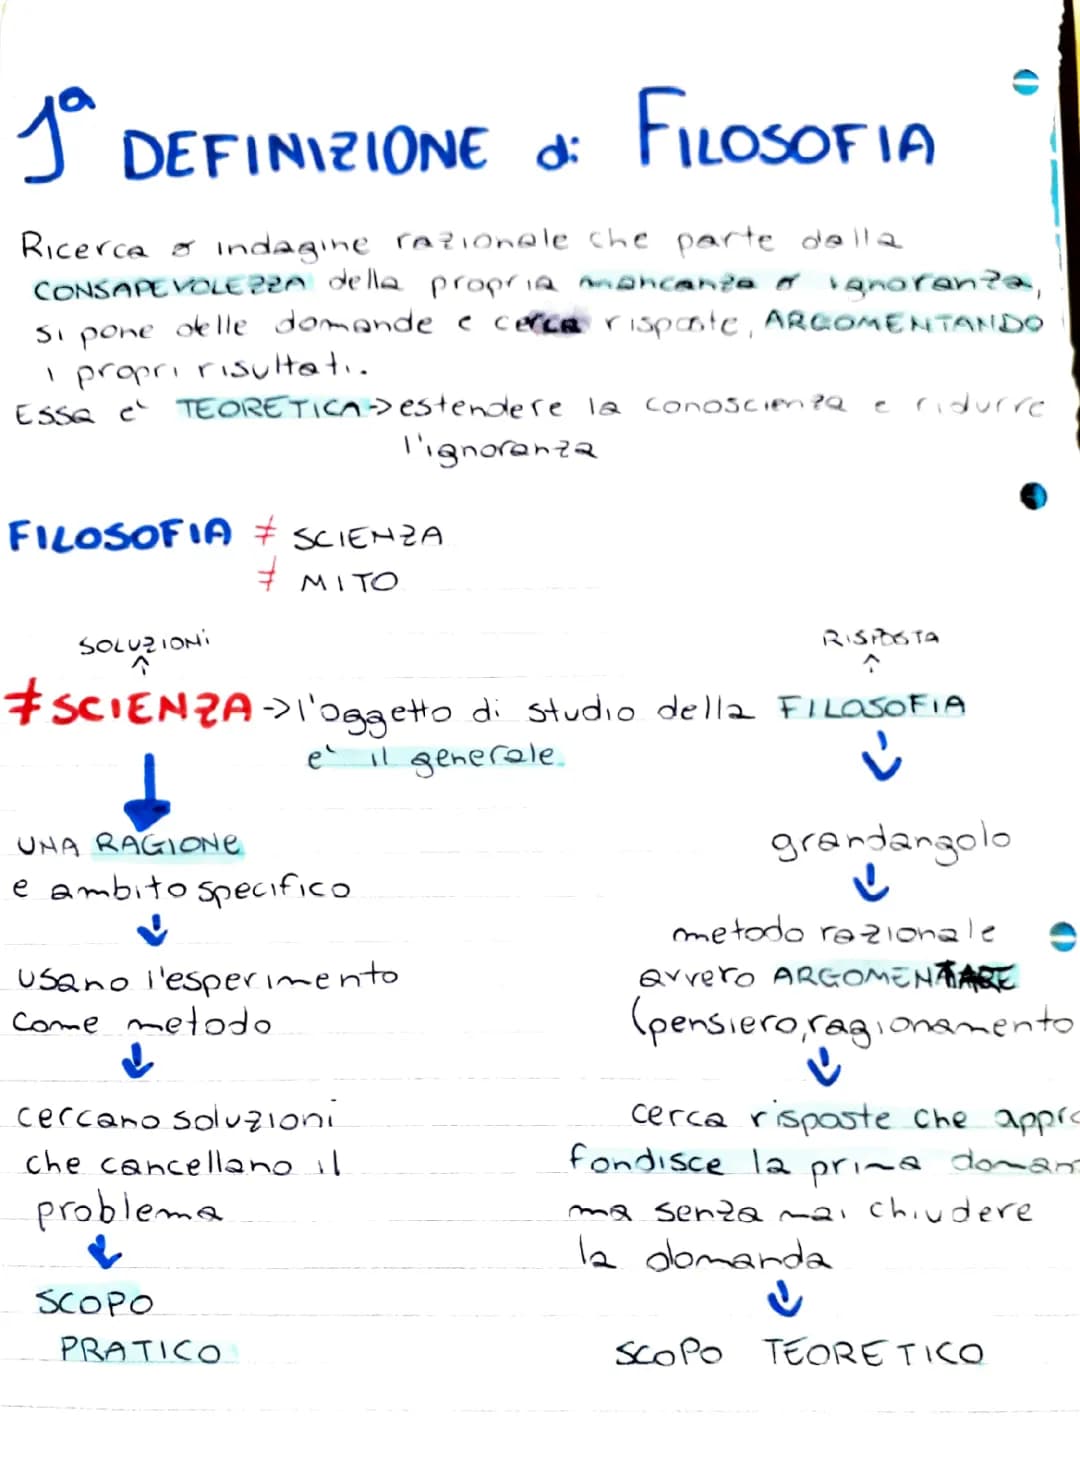 1ª DEFINIZIONE di FILOSOFIA
Ricerca o indagine razionale che parte dalla
CONSAPEVOLEZZA della propria mancanza o ignoranza,
si pone delle domande e cerca risposte, ARGOMENTANDO
i propri risultati.
Essa e' TEORETICA->estendere la conoscienza e ridurre
l'ignoranza
FILOSOFIA ≠ SCIENZA
≠ MITO
SOLUZIONi
RISPOSTA
≠SCIENZA->l'oggetto di studio della FILOSOFIA
e' il generale.
UNA RAGIONE
e ambito specifico
usano l'esperimento
come metodo
cercano soluzioni
che cancellano il
problema
SCOPO
PRATICO
grandangolo
metodo razionale
avvero ARGOMENTARE
(pensiero,ragionamento
cerca risposte che appro
fondisce la prima doman
ma senza mai chiudere
la domanda
SCOPO TEORETICO